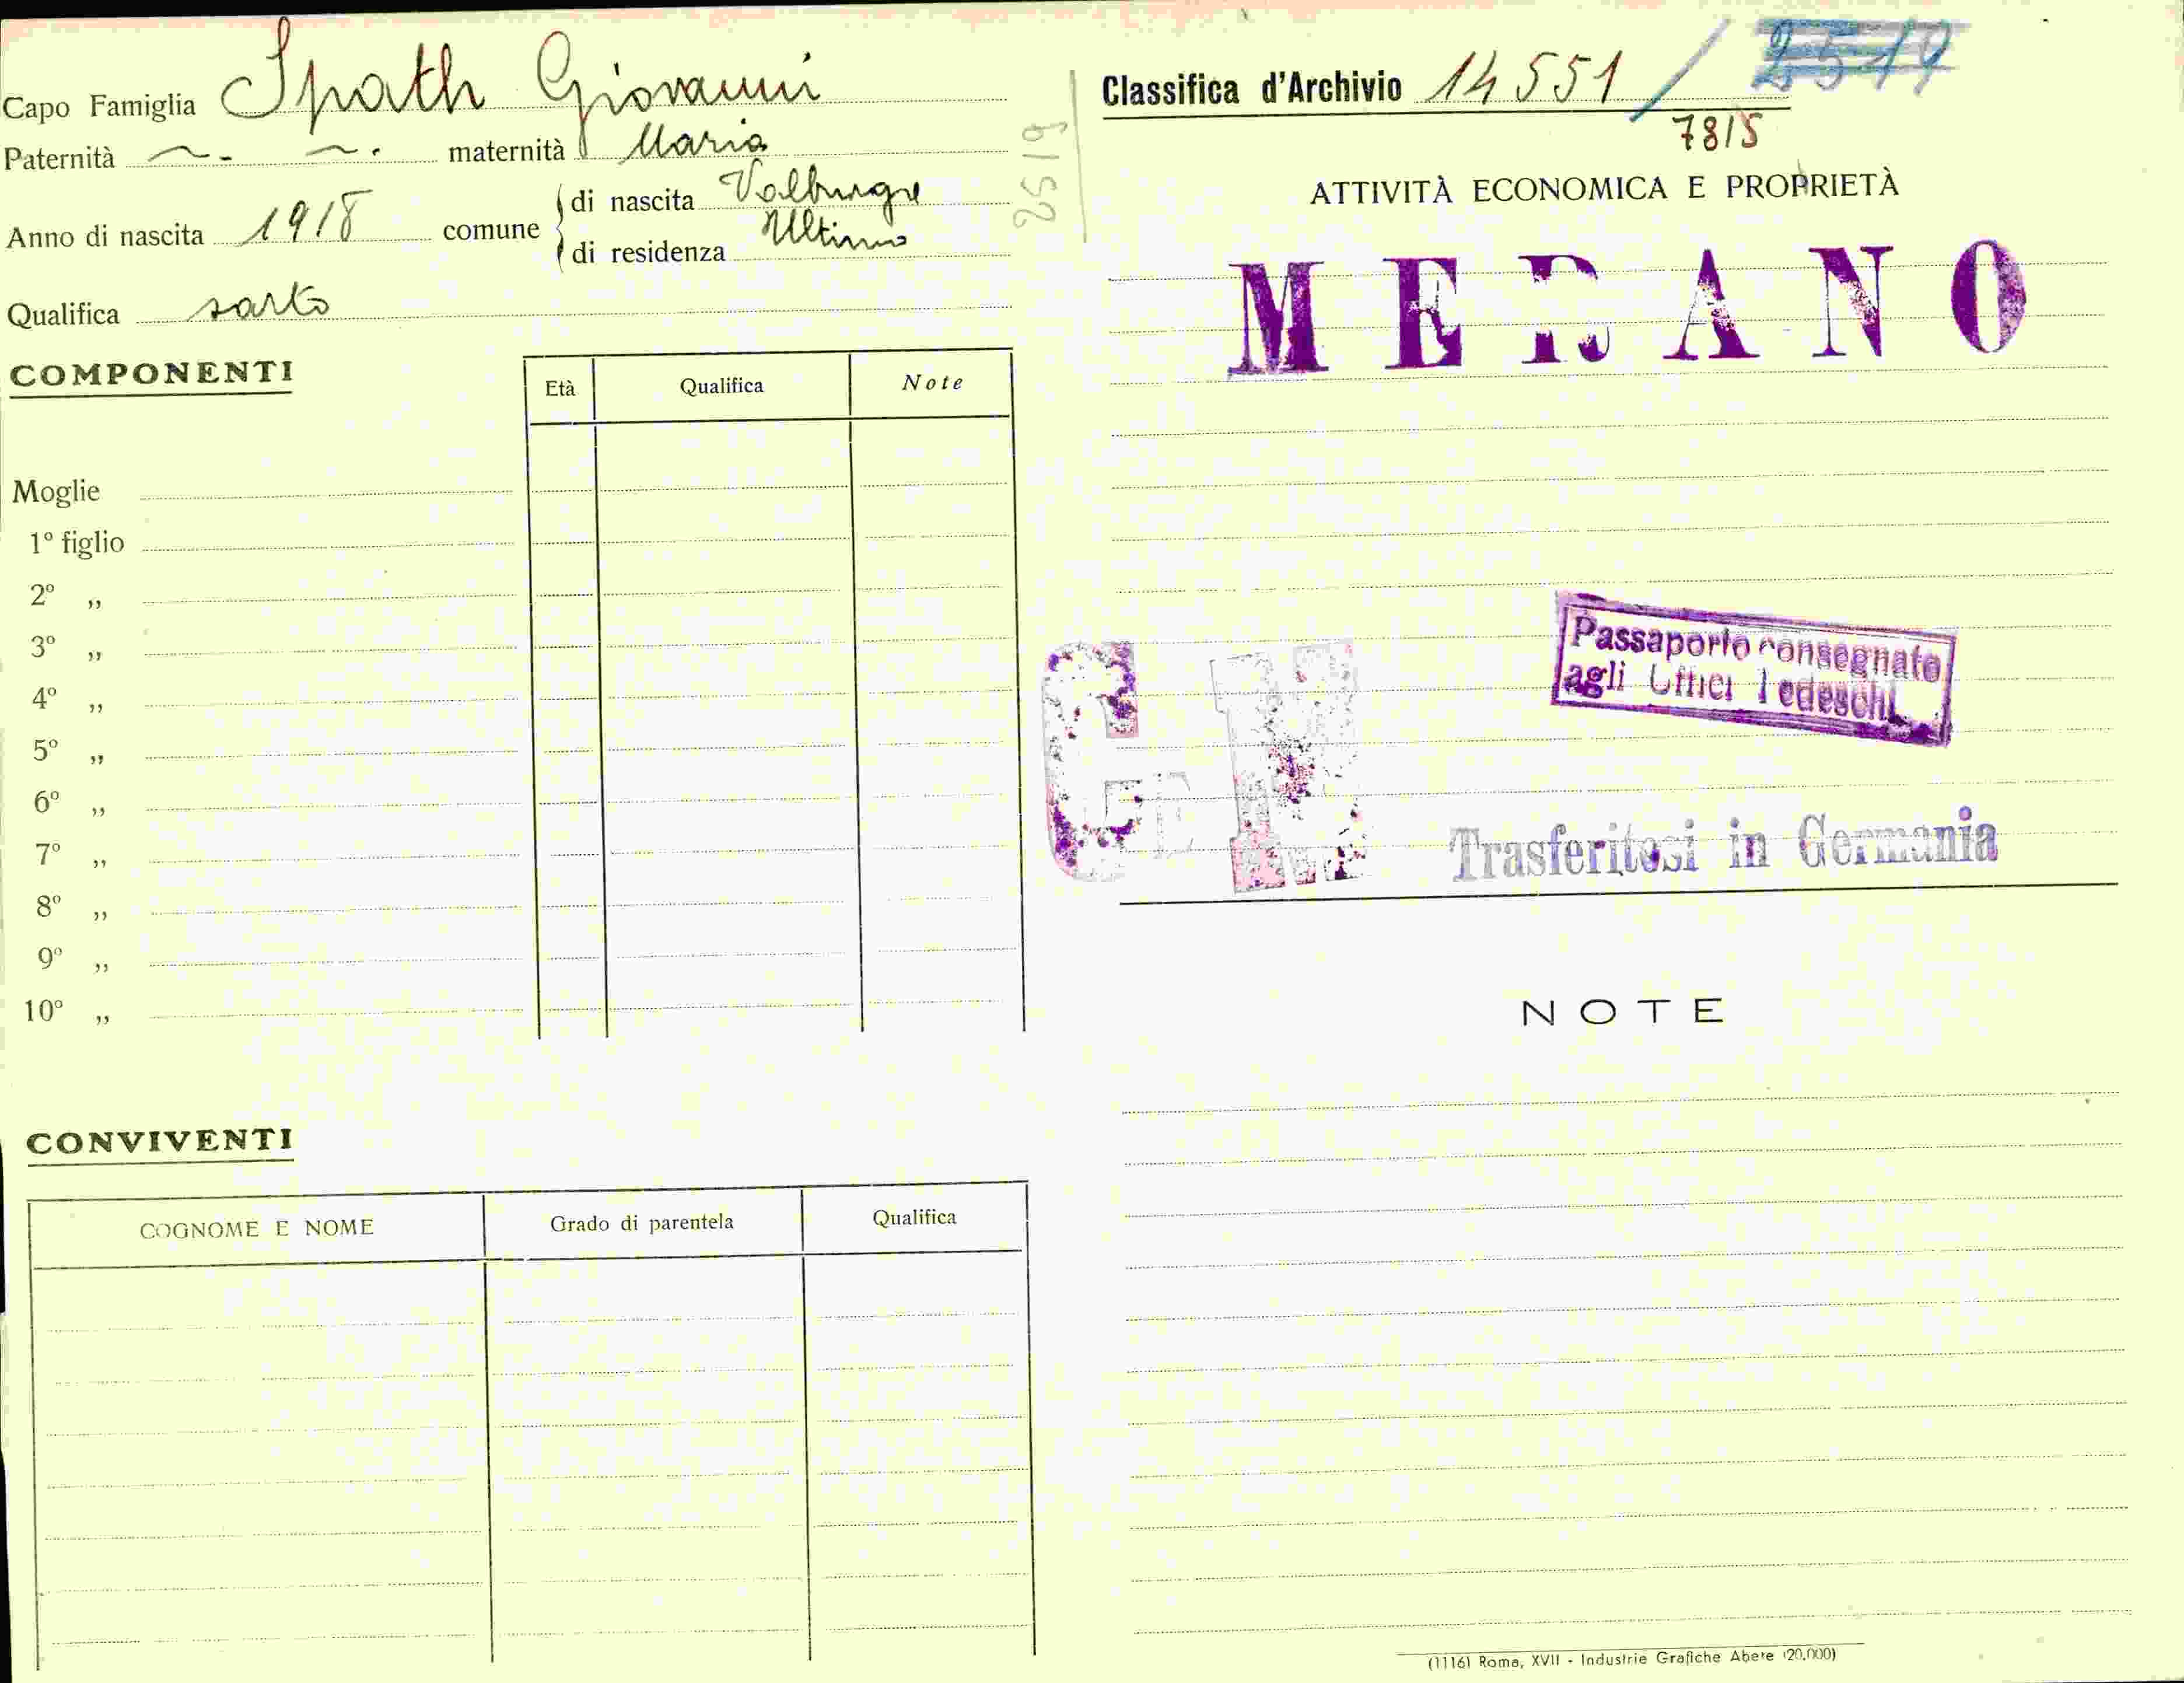 Capo Famiglia Spath Giovanni
Paternità ~ - ~ . maternità Maria
Anno di nascita 1918 comune
di nascita Valburga
di residenza Ultimo
Qualifica sarto
COMPONENTI
Età Qualifica Note
Moglie
1º figlio
2º „
3º „
4º „
5º „
6º „
7º „
8º „
9º „
10º „
CONVIVENTI
COGNOME E NOME Grado di parentela Qualifica
2519
Classifica d'Archivio 14551 / 2519
7815
ATTIVITÀ ECONOMICA E PROPRIETÀ
MERANO
Passaporto consegnato
agli Uffici Tedeschi
Trasferitosi in Germania
NOTE
(1116) Roma, XVII - Industrie Grafiche Abete (20.000)